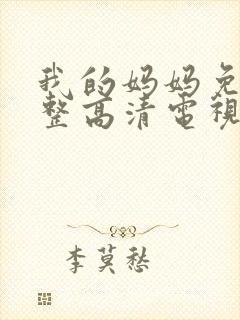 我的妈妈免
整高清电視
李莫愁